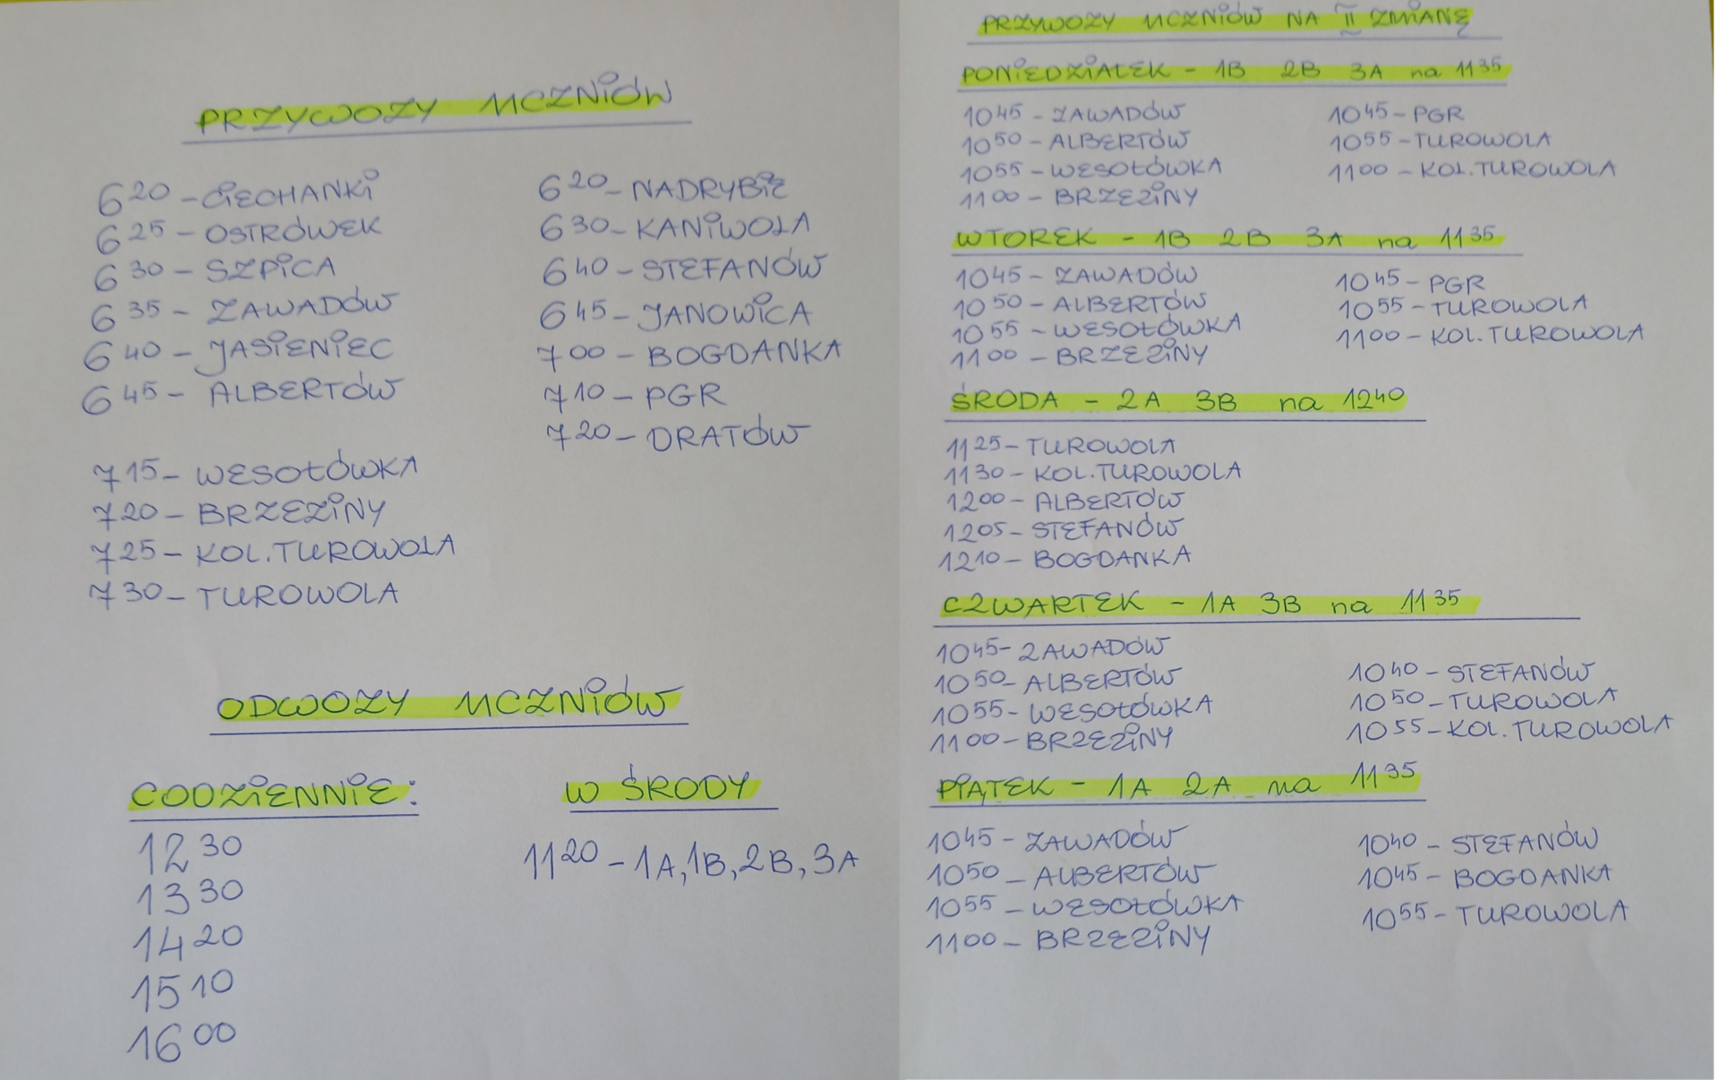 PRZYWOZY UCZNIÓW
6 20 - CIECHANKI
6 25 - OSTRÓWEK
6 30 - SZPICA
6 35 - ZAWADÓW
6 40 - JASIENIEC
6 45 - ALBERTÓW
7 15 - WESOŁÓWKA
7 20 - BRZEZINY
7 25 - KOL. TUROWOLA
7 30 - TUROWOLA
6 20 - NADRYBIE
6 30 - KANIWOLA
6 40 - STEFANÓW
6 45 - JANOWICA
7 00 - BOGDANKA
7 10 - PGR
7 20 - DRATÓW
ODWOZY UCZNIÓW
CODZIENNIE:
12 30
13 30
14 20
15 10
16 00
W ŚRODY
11 20 - 1A, 1B, 2B, 3A
PRZYWOZY UCZNIÓW NA II ZMIANĘ
PONIEDZIAŁEK - 1B 2B 3A na 11 35
10 45 - ZAWADÓW
10 50 - ALBERTÓW
10 55 - WESOŁÓWKA
11 00 - BRZEZINY
10 45 - PGR
10 55 - TUROWOLA
11 00 - KOL. TUROWOLA
WTOREK - 1B 2B 3A na 11 35
10 45 - ZAWADÓW
10 50 - ALBERTÓW
10 55 - WESOŁÓWKA
11 00 - BRZEZINY
10 45 - PGR
10 55 - TUROWOLA
11 00 - KOL. TUROWOLA
ŚRODA - 2A 3B na 12 40
11 25 - TUROWOLA
11 30 - KOL. TUROWOLA
12 00 - ALBERTÓW
12 05 - STEFANÓW
12 10 - BOGDANKA
CZWARTEK - 1A 3B na 11 35
10 45 - ZAWADÓW
10 50 - ALBERTÓW
10 55 - WESOŁÓWKA
11 00 - BRZEZINY
10 40 - STEFANÓW
10 50 - TUROWOLA
10 55 - KOL. TUROWOLA
PIĄTEK - 1A 2A na 11 35
10 45 - ZAWADÓW
10 50 - ALBERTÓW
10 55 - WESOŁÓWKA
11 00 - BRZEZINY
10 40 - STEFANÓW
10 45 - BOGDANKA
10 55 - TUROWOLA